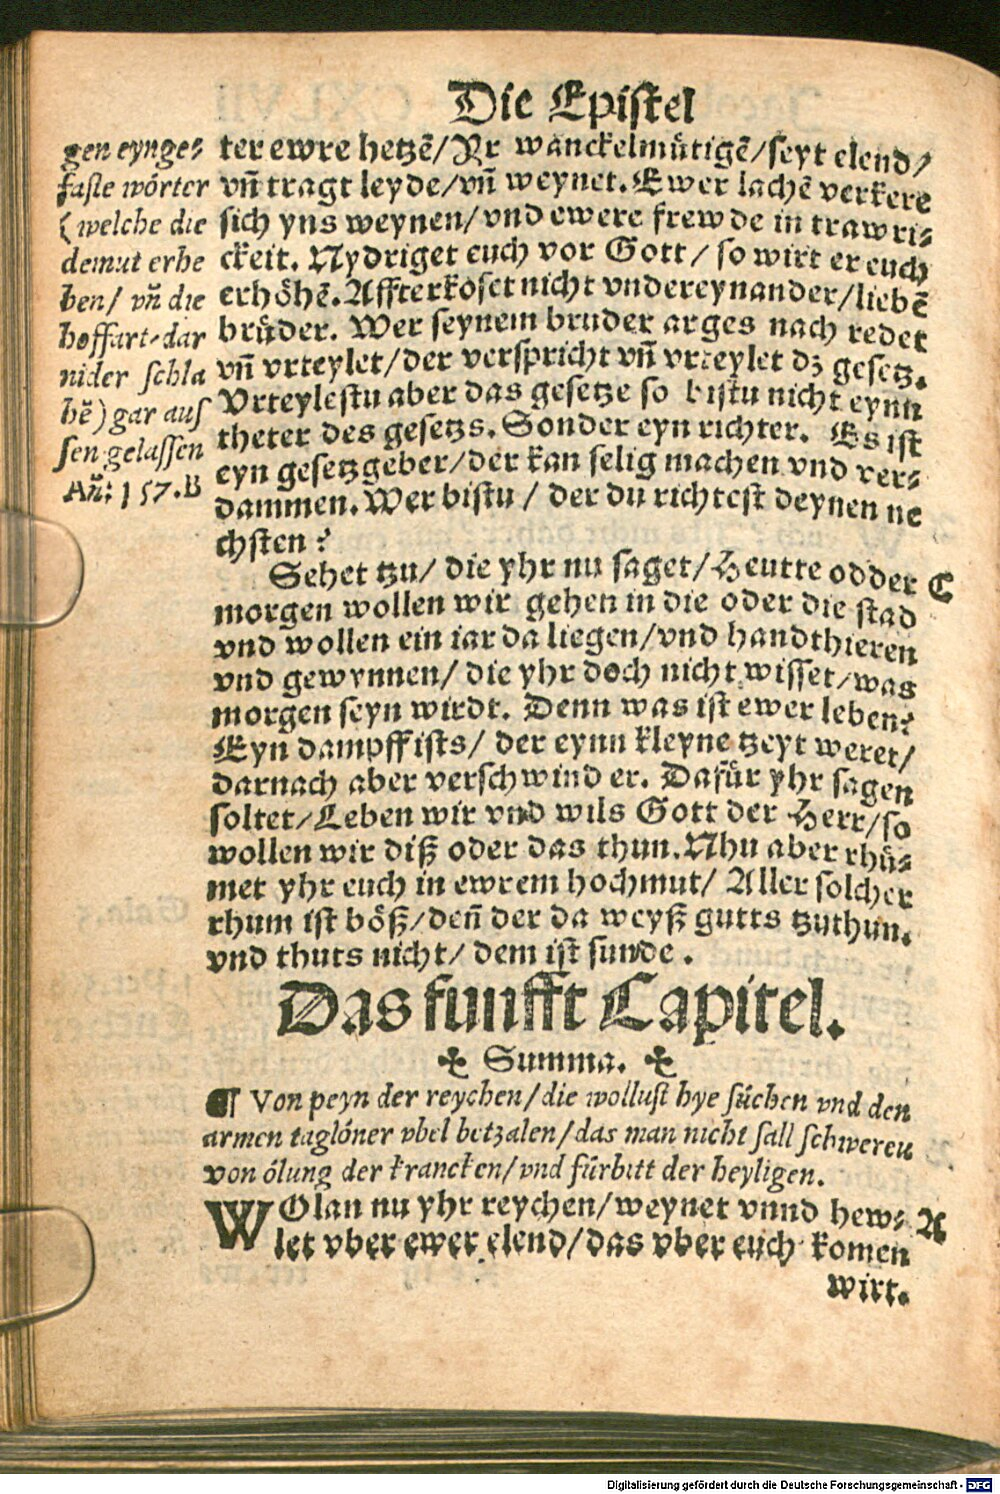 Die Epistel
gen eynge⸗
faste wörter
(welche die
demut erhe
ben/ vñ die
hoffart⸗dar
nider schla
hẽ) gar aus
sen gelassen
Añ: 157.B
ter ewre hetzẽ/Yr wanckelmütigẽ/seyt elend/
vñ tragt leyde/vñ weynet. Ewer lachẽ verkere
sich yns weynen/vnd ewere frewde in trawri⸗
ckeit. Nydriget euch vor Gott/ so wirt er euch
erhöhẽ. Affterkoset nicht vndereynander/liebẽ
brüder. Wer seynem bruder arges nach redet
vñ vrteylet/der verspricht vñ vrteylet dz gesetz.
Vrteylestu aber das gesetze so bistu nicht eynn
theter des gesetzs. Sonder eyn richter. Es ist
eyn gesetzgeber/der kan selig machen vnd ver⸗
dammen. Wer bistu/ der du richtest deynen ne
chsten?
Sehet tzu/ die yhr nu saget/Heutte odder C
morgen wollen wir gehen in die oder die stad
vnd wollen ein iar da liegen/vnd handthieren
vnd gewynnen/ die yhr doch nicht wisset/was
morgen seyn wirdt. Denn was ist ewer leben?
Eyn dampff ists/ der eynn kleyne tzeyt weret/
darnach aber verschwind er. Dafür yhr sagen
soltet/Leben wir vnd wils Gott der Herr/so
wollen wir diß oder das thun. Nhu aber rhü⸗
met yhr euch in ewrem hochmut/ Aller solcher
rhum ist böß/deñ der da weyß gutts tzuthun.
vnd thuts nicht/ dem ist sunde.
Das funfft Capitel.
✣ Summa. ✣
¶ Von peyn der reychen/die wollust hye süchen vnd den
armen taglöner vbel betzalen/das man nicht sall schweren
von ölung der krancken/vnd fürbitt der heyligen.
WOlan nu yhr reychen/weynet vnnd hew⸗ A
let vber ewer elend/das vber euch komen
wirt.
Digitalisierung gefördert durch die Deutsche Forschungsgemeinschaft - DFG